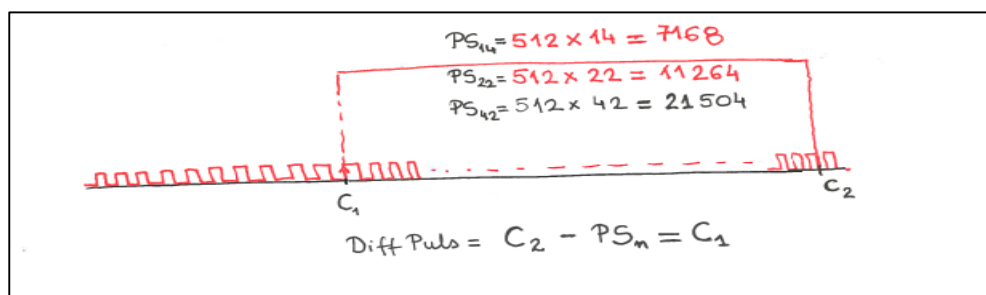 PS₁₄= 512 × 14 = 7168
PS₂₂= 512 × 22 = 11264
PS₄₂= 512 × 42 = 21504
C₁ C₂
Diff Puls = C₂ - PSₙ = C₁